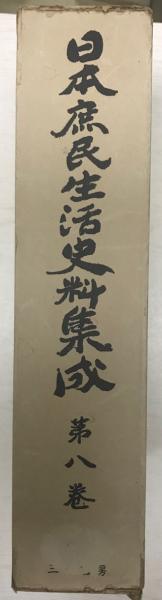 日本庶民生活史料集成
第八巻
三